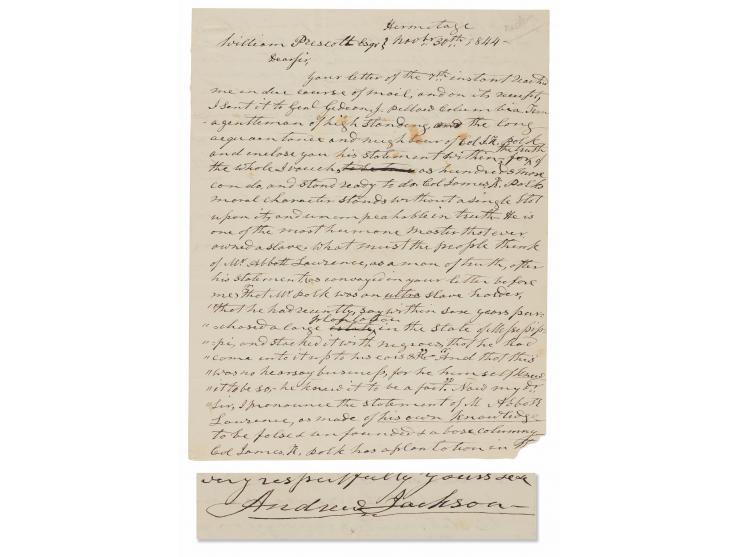 Hermitage
William Prescott Esqr } Novbr. 30th. 1844—
Dear sir,
Your letter of the 7th. instant reached
me in due course of mail, and on its receipt,
I sent it to Genl Gideon J. Pillow Columbia Ten
a gentleman of high standing and the long
acquaintance and neighbour of Col J. K. Polk
and enclose you his statement within, for the truth of
the whole I vouch as hundreds more
can do, and stand ready to do. Col James K. Polk
moral character stands without a single blot
upon it, and unimpeachable in truth. He is
one of the most humane Masters that ever
owned a slave. What must the people think
of Mr. Abbott Lawrence, as a man of truth, after
his statement as convayed in your letter before
me, "that Mr. Polk was an ultra slave holder,
"that he had recently, say within some years pur-
"chased a large estate, plantation in the State of Mississip-
"pi, and stocked it with negroes, that he had
"come into it up to his ears &c—" And that this
"was no hearsay business, for he himself knew
"it to be so,— he knew it to be a fact." Now my dr
Sir, I pronounce the statement of M Abbott
Lawrence, as made of his own knowledge
to be false & unfounded & a base calumny
Col James, K. Polk has a plantation in
very respectfully yours &c
Andrew Jackson